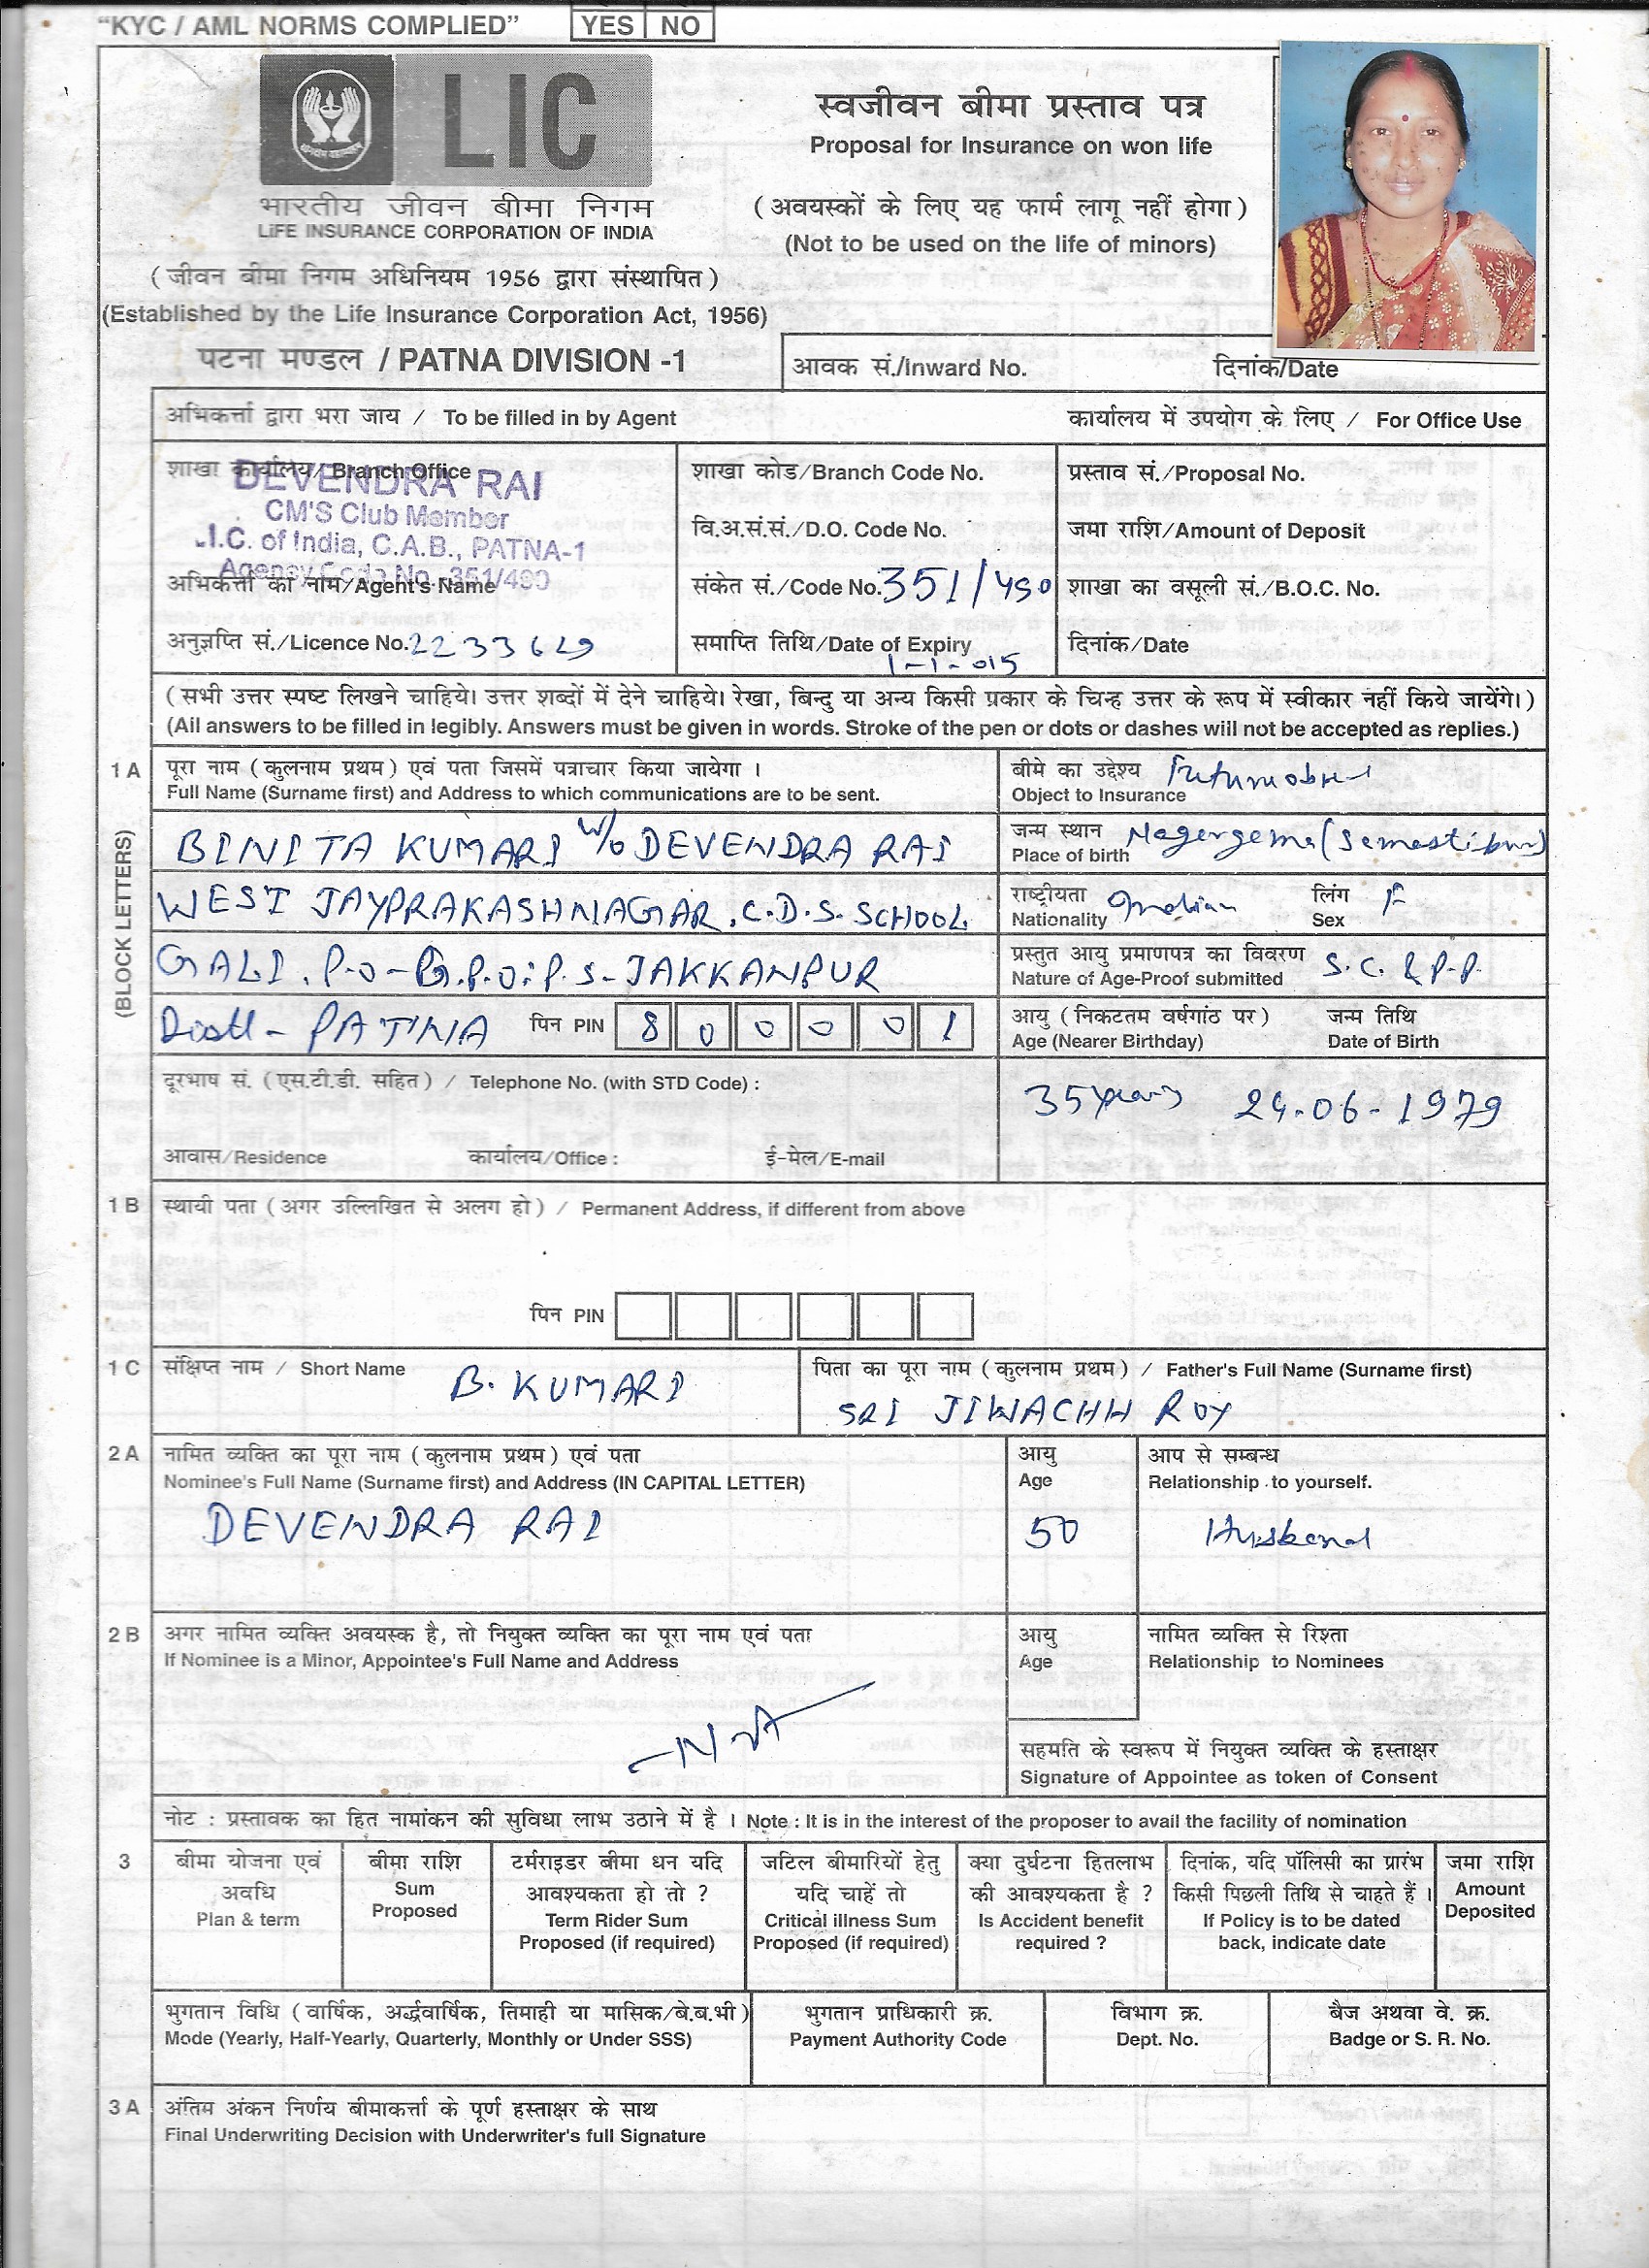 "KYC / AML NORMS COMPLIED" YES NO
LIC
भारतीय जीवन बीमा निगम
LIFE INSURANCE CORPORATION OF INDIA
( जीवन बीमा निगम अधिनियम 1956 द्वारा संस्थापित )
(Established by the Life Insurance Corporation Act, 1956)
पटना मण्डल / PATNA DIVISION -1
स्वजीवन बीमा प्रस्ताव पत्र
Proposal for Insurance on won life
( अवयस्कों के लिए यह फार्म लागू नहीं होगा )
(Not to be used on the life of minors)
आवक सं./Inward No. दिनांक/Date
अभिकर्त्ता द्वारा भरा जाय / To be filled in by Agent
कार्यालय में उपयोग के लिए / For Office Use
शाखा कार्यालय/Branch Office
DEVENDRA RAI
CM'S Club Member
L.I.C. of India, C.A.B., PATNA-1
Agency Code No. 351/490
अभिकर्त्ता का नाम/Agent's Name
अनुज्ञप्ति सं./Licence No.
शाखा कोड/Branch Code No.
वि.अ.सं.सं./D.O. Code No.
संकेत सं./Code No. 351/490
समाप्ति तिथि/Date of Expiry
1-1-015
प्रस्ताव सं./Proposal No.
जमा राशि/Amount of Deposit
शाखा का वसूली सं./B.O.C. No.
दिनांक/Date
( सभी उत्तर स्पष्ट लिखने चाहिये। उत्तर शब्दों में देने चाहिये। रेखा, बिन्दु या अन्य किसी प्रकार के चिन्ह उत्तर के रूप में स्वीकार नहीं किये जायेंगे। )
(All answers to be filled in legibly. Answers must be given in words. Stroke of the pen or dots or dashes will not be accepted as replies.)
1 A पूरा नाम ( कुलनाम प्रथम ) एवं पता जिसमें पत्राचार किया जायेगा ।
Full Name (Surname first) and Address to which communications are to be sent.
(BLOCK LETTERS)
BINITA KUMARI W/o DEVENDRA RAI
WEST JAYPRAKASHNAGAR, C.D.S. SCHOOL
GALI, P.O-G.P.O; P.S-JAKKANPUR
Distt- PATNA पिन PIN 8 0 0 0 0 1
बीमे का उद्देश्य
Object to Insurance
जन्म स्थान
Place of birth
राष्ट्रीयता Indian लिंग F
Nationality Sex
प्रस्तुत आयु प्रमाणपत्र का विवरण S.C. & P.P.
Nature of Age-Proof submitted
आयु ( निकटतम वर्षगांठ पर ) जन्म तिथि
Age (Nearer Birthday) Date of Birth
35 years 24-06-1979
दूरभाष सं. ( एस.टी.डी. सहित ) / Telephone No. (with STD Code) :
आवास/Residence कार्यालय/Office : ई-मेल/E-mail
1 B स्थायी पता ( अगर उल्लिखित से अलग हो ) / Permanent Address, if different from above
पिन PIN
1 C संक्षिप्त नाम / Short Name B. KUMARI
पिता का पूरा नाम ( कुलनाम प्रथम ) / Father's Full Name (Surname first)
SRI JIWACHH ROY
2 A नामित व्यक्ति का पूरा नाम ( कुलनाम प्रथम ) एवं पता
Nominee's Full Name (Surname first) and Address (IN CAPITAL LETTER)
DEVENDRA RAI
आयु
Age
50
आप से सम्बन्ध
Relationship to yourself.
Husband
2 B अगर नामित व्यक्ति अवयस्क है, तो नियुक्त व्यक्ति का पूरा नाम एवं पता
If Nominee is a Minor, Appointee's Full Name and Address
आयु
Age
नामित व्यक्ति से रिश्ता
Relationship to Nominees
सहमति के स्वरूप में नियुक्त व्यक्ति के हस्ताक्षर
Signature of Appointee as token of Consent
नोट : प्रस्तावक का हित नामांकन की सुविधा लाभ उठाने में है । Note : It is in the interest of the proposer to avail the facility of nomination
3 बीमा योजना एवं
अवधि
Plan & term
बीमा राशि
Sum
Proposed
टर्मराइडर बीमा धन यदि
आवश्यकता हो तो ?
Term Rider Sum
Proposed (if required)
जटिल बीमारियों हेतु
यदि चाहें तो
Critical illness Sum
Proposed (if required)
क्या दुर्घटना हितलाभ
की आवश्यकता है ?
Is Accident benefit
required ?
दिनांक, यदि पॉलिसी का प्रारंभ
किसी पिछली तिथि से चाहते हैं ।
If Policy is to be dated
back, indicate date
जमा राशि
Amount
Deposited
भुगतान विधि ( वार्षिक, अर्द्धवार्षिक, तिमाही या मासिक/बे.ब.भी )
Mode (Yearly, Half-Yearly, Quarterly, Monthly or Under SSS)
भुगतान प्राधिकारी क्र.
Payment Authority Code
विभाग क्र.
Dept. No.
बैज अथवा वे. क्र.
Badge or S. R. No.
3 A अंतिम अंकन निर्णय बीमाकर्त्ता के पूर्ण हस्ताक्षर के साथ
Final Underwriting Decision with Underwriter's full Signature